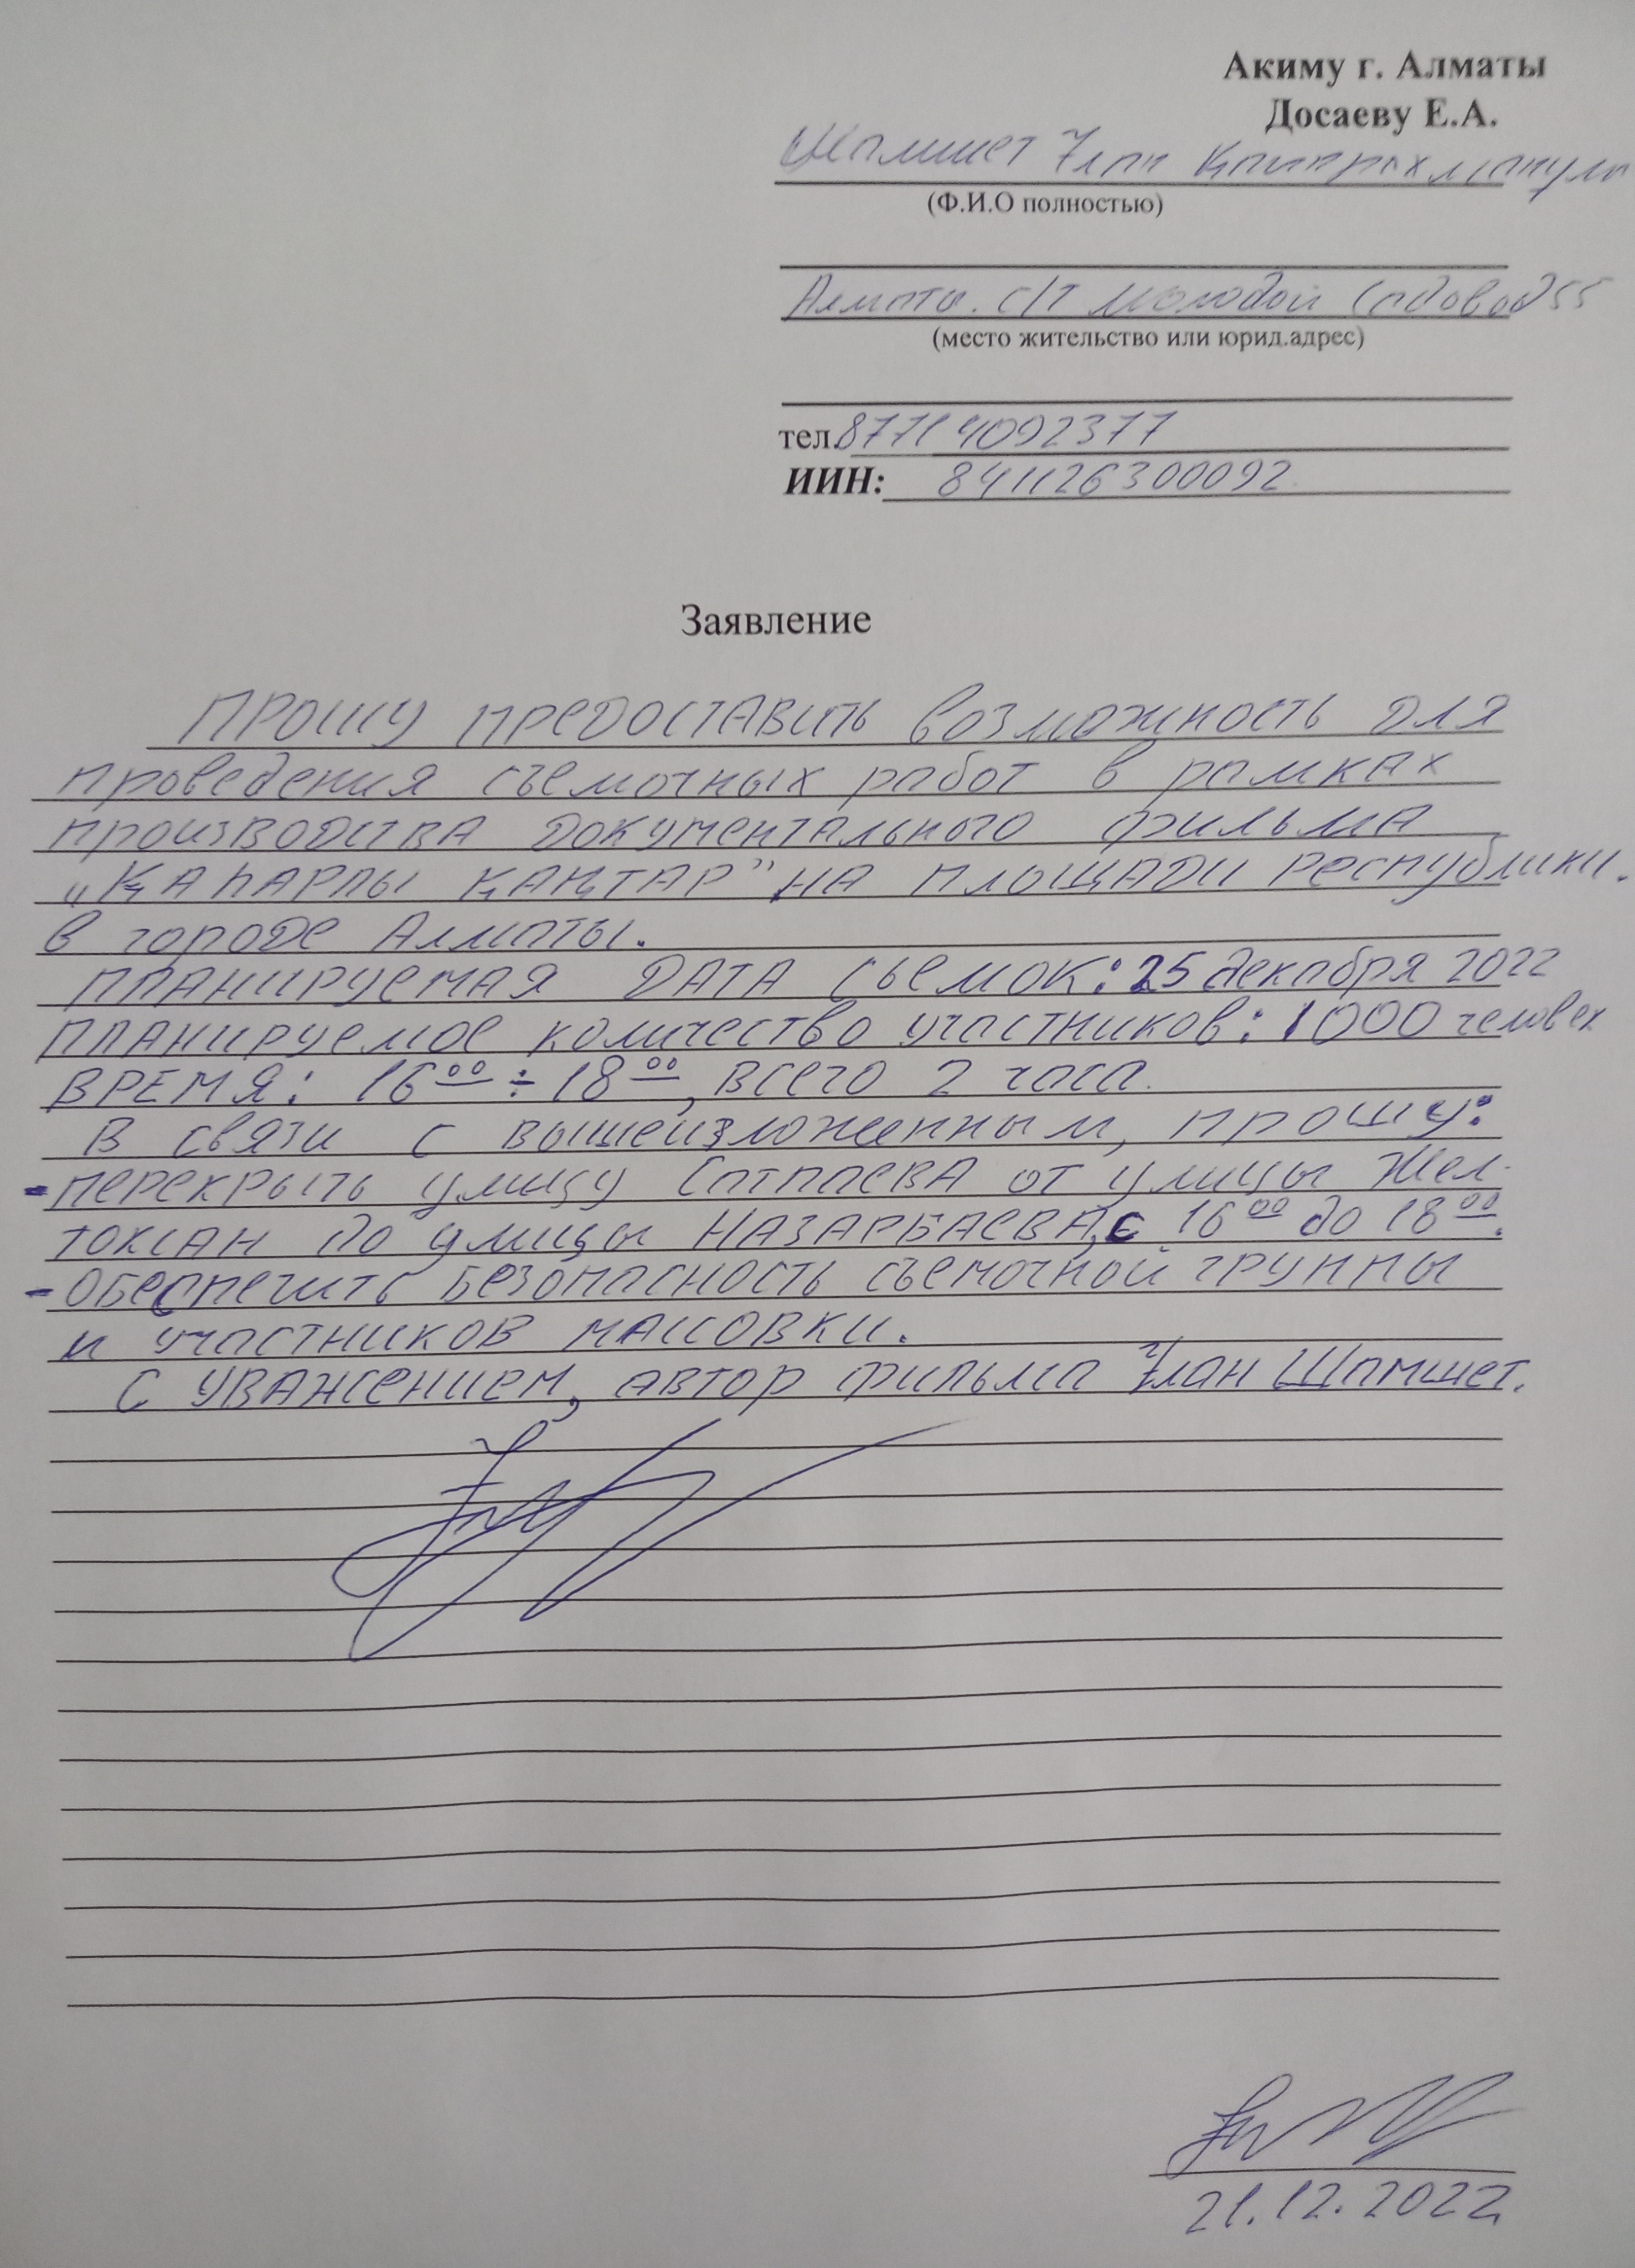 Акиму г. Алматы
Досаеву Е.А.
Шамшет Ұлан
(Ф.И.О полностью)
Алматы. с/т Молодой Садовод 55
(место жительство или юрид.адрес)
тел. 87714092377
ИИН: 841126300092
Заявление
Прошу предоставить возможность для
проведения съемочных работ в рамках
производства документального фильма
"Қаһарлы Қаңтар" на площади Республики.
в городе Алматы.
Планируемая дата сьемок: 25 декабря 2022
Планируемое количество участников: 1000 человек
Время: 16 00 ÷ 18 00, всего 2 часа.
В связи с вышеизложенным, прошу:
- перекрыть улицу Сатпаева от улицы Жел-
токсан до улицы Назарбаева, с 16 00 до 18 00.
- Обеспечить безопасность съемочной группы
и участников массовки.
С уважением, автор фильма Ұлан Шамшет.
21.12.2022